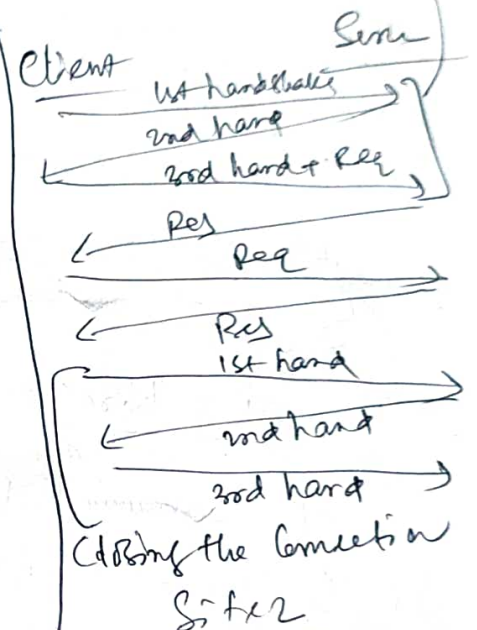 Server
Client
1st handshake
2nd hand
3rd hand + Req
Res
Req
Res
1st hand
2nd hand
3rd hand
Closing the Connection